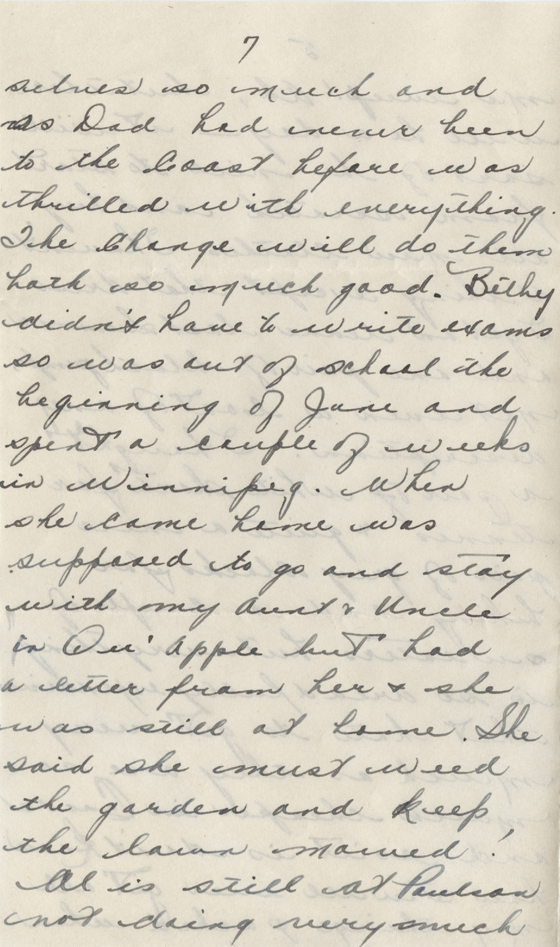 7
selves so much and
as Dad had never been
to the Coast before was
thrilled with everything.
The Change will do them
both so much good. Bethy
didn't have to write exams
so was out of school the
beginning of June and
spent a couple of weeks
in Winnipeg. When
she came home was
supposed to go and stay
with my Aunt & Uncle
in Qu' Apple but had
a letter from her & she
was still at home. She
said she must weed
the garden and keep
the lawn mowed!
Al is still at Paulson
not doing very much